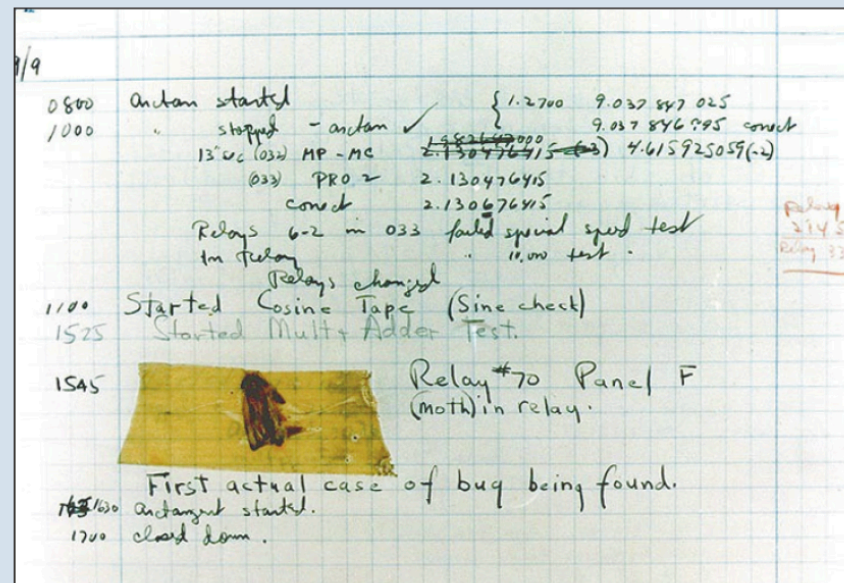 9/9
0800 arctan started { 1.2700 9.037 847 025
1000 " stopped - arctan ✓ 9.037 846 795 conect
13"sec (032) MP - MC 2.130476415 (-3) 4.615925059(-2)
(033) PRO 2 2.130476415
conect 2.130676415
Relays 6-2 in 033 failed special speed test
In Relay " 10,000 test .
Relay
Relays changed
1100 Started Cosine Tape (Sine check)
1525 Started Mult + Adder Test.
1545 Relay #70 Panel F
(moth) in relay.
First actual case of bug being found.
1630 arctangent started.
1700 closed down .